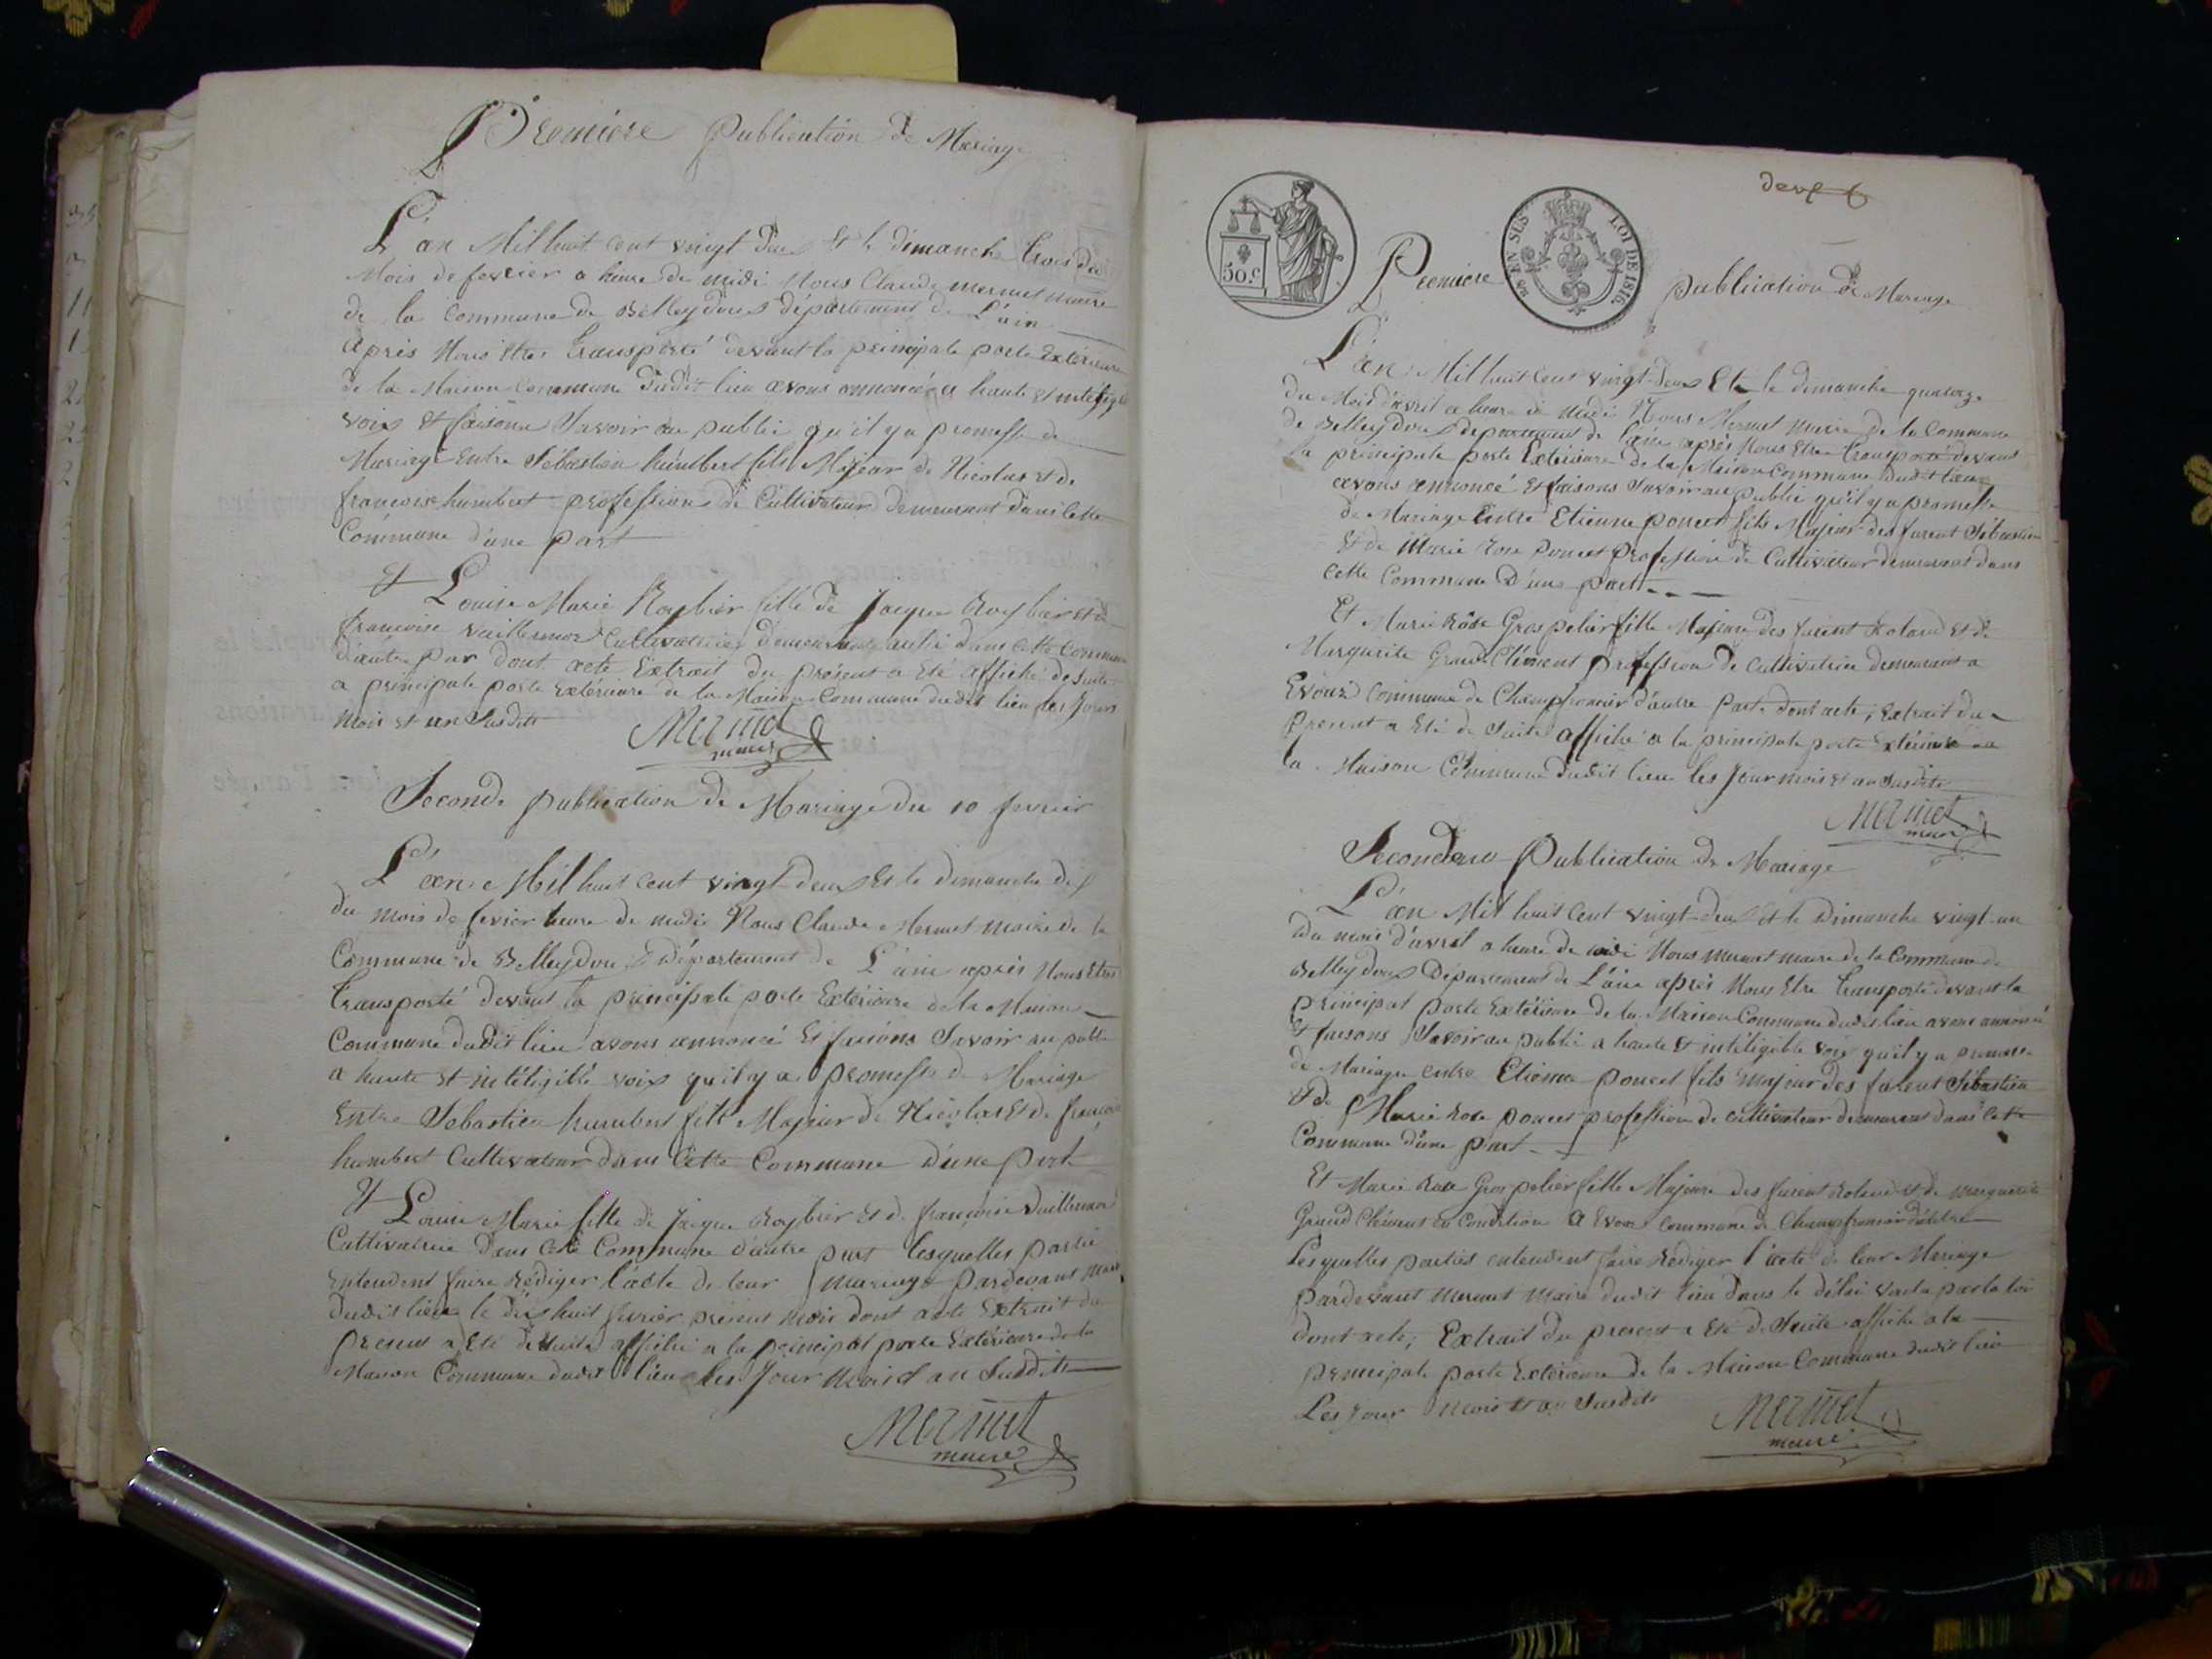 Premiere Publication de Mariage
L'an Mil huit cent vingt deux et le dimanche trois du
Mois de fevrier a heure de midi Nous Claude mermet maire
de la Commune de Belleydoux département de L'ain
après Nous être transporté devant la principale porte Extérieure
de la Maison Commune dudit lieu avons annoncé a haute et intéligible
voix et faisons savoir au public qu'il y a promesse de
Mariage Entre Sébastien humbert fils Majeur de Nicolas et de
francoise humbert profession de Cultivateur demeurant dans cette
Commune d'une part
Et Louise Marie Roybier fille de Jacque Roybier et de
francoise vuillermoz Cultivatrice demeurant aussi dans cette Commune
d'autre par dont acte Extrait du présent a Eté affiché de suite
a principale porte Extérieure de la Maison Commune dudit lieu les Jours
mois et an susdit
Mermet
maire
Seconde publication de Mariage du 10 fevrier
L'an Mil huit cent vingt deux Et le dimanche dix
du mois de fevrier heure de midi Nous Claude Mermet maire de la
Commune de Belleydoux Département de L'ain après Nous Etre
transporté devant la principale porte Extérieure de la Maison
Commune dudit lieu avons annoncé Et faisons Savoir au public
a haute et intéligible voix qu'il y a promesse de Mariage
Entre Sebastien humbert fils Majeur de Nicolas Et de francoise
humbert Cultivateur dans Cette Commune d'une part
Et Louise Marie fille de Jacque Roybier et de francoise Vuillermoz
Cultivatrice dans Cette Commune d'autre part lesquelles partie
entendent faire Rédiger l'acte de leur mariage pardevant Nous
dudit lieu le dix huit fevrier présent mois dont acte Extrait du
présent a Eté de suite affiché a la principal porte Extérieure de la
Maison Commune dudit lieu les Jour mois et an Susdit
Mermet
maire
deux
50.c
EN SUS
LOI DE 1816
Premiere publication de Mariage
L'an Mil huit cent vingt-deux Et le dimanche quatorze
du Mois d'avril a heure de midi Nous Mermet maire de la Commune
de Belleydoux département de l'ain après Nous Etre transporté devant
la principale porte Extérieure de la Maison Commune dudit lieu
avons annoncé Et faisons Savoir au public qu'il y a promesse
de Mariage Entre Etienne poncet fils Majeur des furent Sébastien
Et de Marie Rose Poncet profession de Cultivateur demeurant dans
cette Commune d'une part
Et Marie Rose Grospelier fille Majeure des furent Roland Et de
Marguerite Grand Clément profession de Cultivatrice demeurant a
Evouaz Commune de Champfromier d'autre Parte dont acte, Extrait du
présent a Eté de Suite affiché a la principale porte Extérieure
la Maison Commune dudit lieu les Jour mois et an Susdits
Mermet
maire
Seconde Publication de Mariage
L'an Mil huit cent vingt-deux Et le Dimanche vingt-un
du mois d'avril a heure de midi Nous mermet maire de la Commune de
Belleydoux Département de L'ain après Nous Etre transporté devant la
principal porte Extérieure de la Maison Commune dudit lieu avons annoncé
Et faisons Savoir au public a haute Et intéligible voix qu'il y a promesse
de Mariage entre Etienne poncet fils majeur des furent Sébastien
Et de Marie Rose poncet profession de cultivateur demeurant dans cette
Commune d'une part
Et Marie Rose Grospelier fille Majeure des furent Roland et de marguerite
Grand Clément en Condition a Evouaz Commune de Champfromier d'autre
Lesquelles parties entendent faire Rédiger l'acte de leur Mariage
pardevant mermet Maire dudit lieu Dans le délai voulu par la loi
dont acte, Extrait du present a Eté de Suite affiché a la
principale porte Extérieure de la Maison Commune dudit lieu
Les Jour mois et an Susdits
Mermet
maire